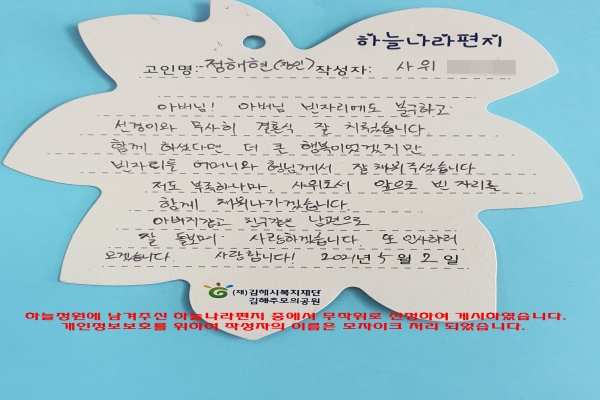 하늘나라편지
고인명: 정해현(장인) 작성자: 사위
아버님! 아버님 빈자리에도 불구하고
선경이와 무사히 결혼식 잘 치렀습니다
함께 하셨다면 더 큰 행복이었겠지만
빈자리를 어머니와 형님께서 잘 채워주셨습니다
저도 부족하나마, 사위로서 앞으로 빈 자리를
함께 채워나가겠습니다.
아버지같고 친구같은 남편으로
잘 돌보며 사랑하겠습니다. 또 인사하러
오겠습니다. 사랑합니다! 2021년 5월 2일
(재)김해시복지재단
김해추모의공원
하늘정원에 남겨주신 하늘나라편지 중에서 무작위로 선정하여 게시하였습니다.
개인정보보호를 위하여 작성자의 이름은 모자이크 처리 되었습니다.